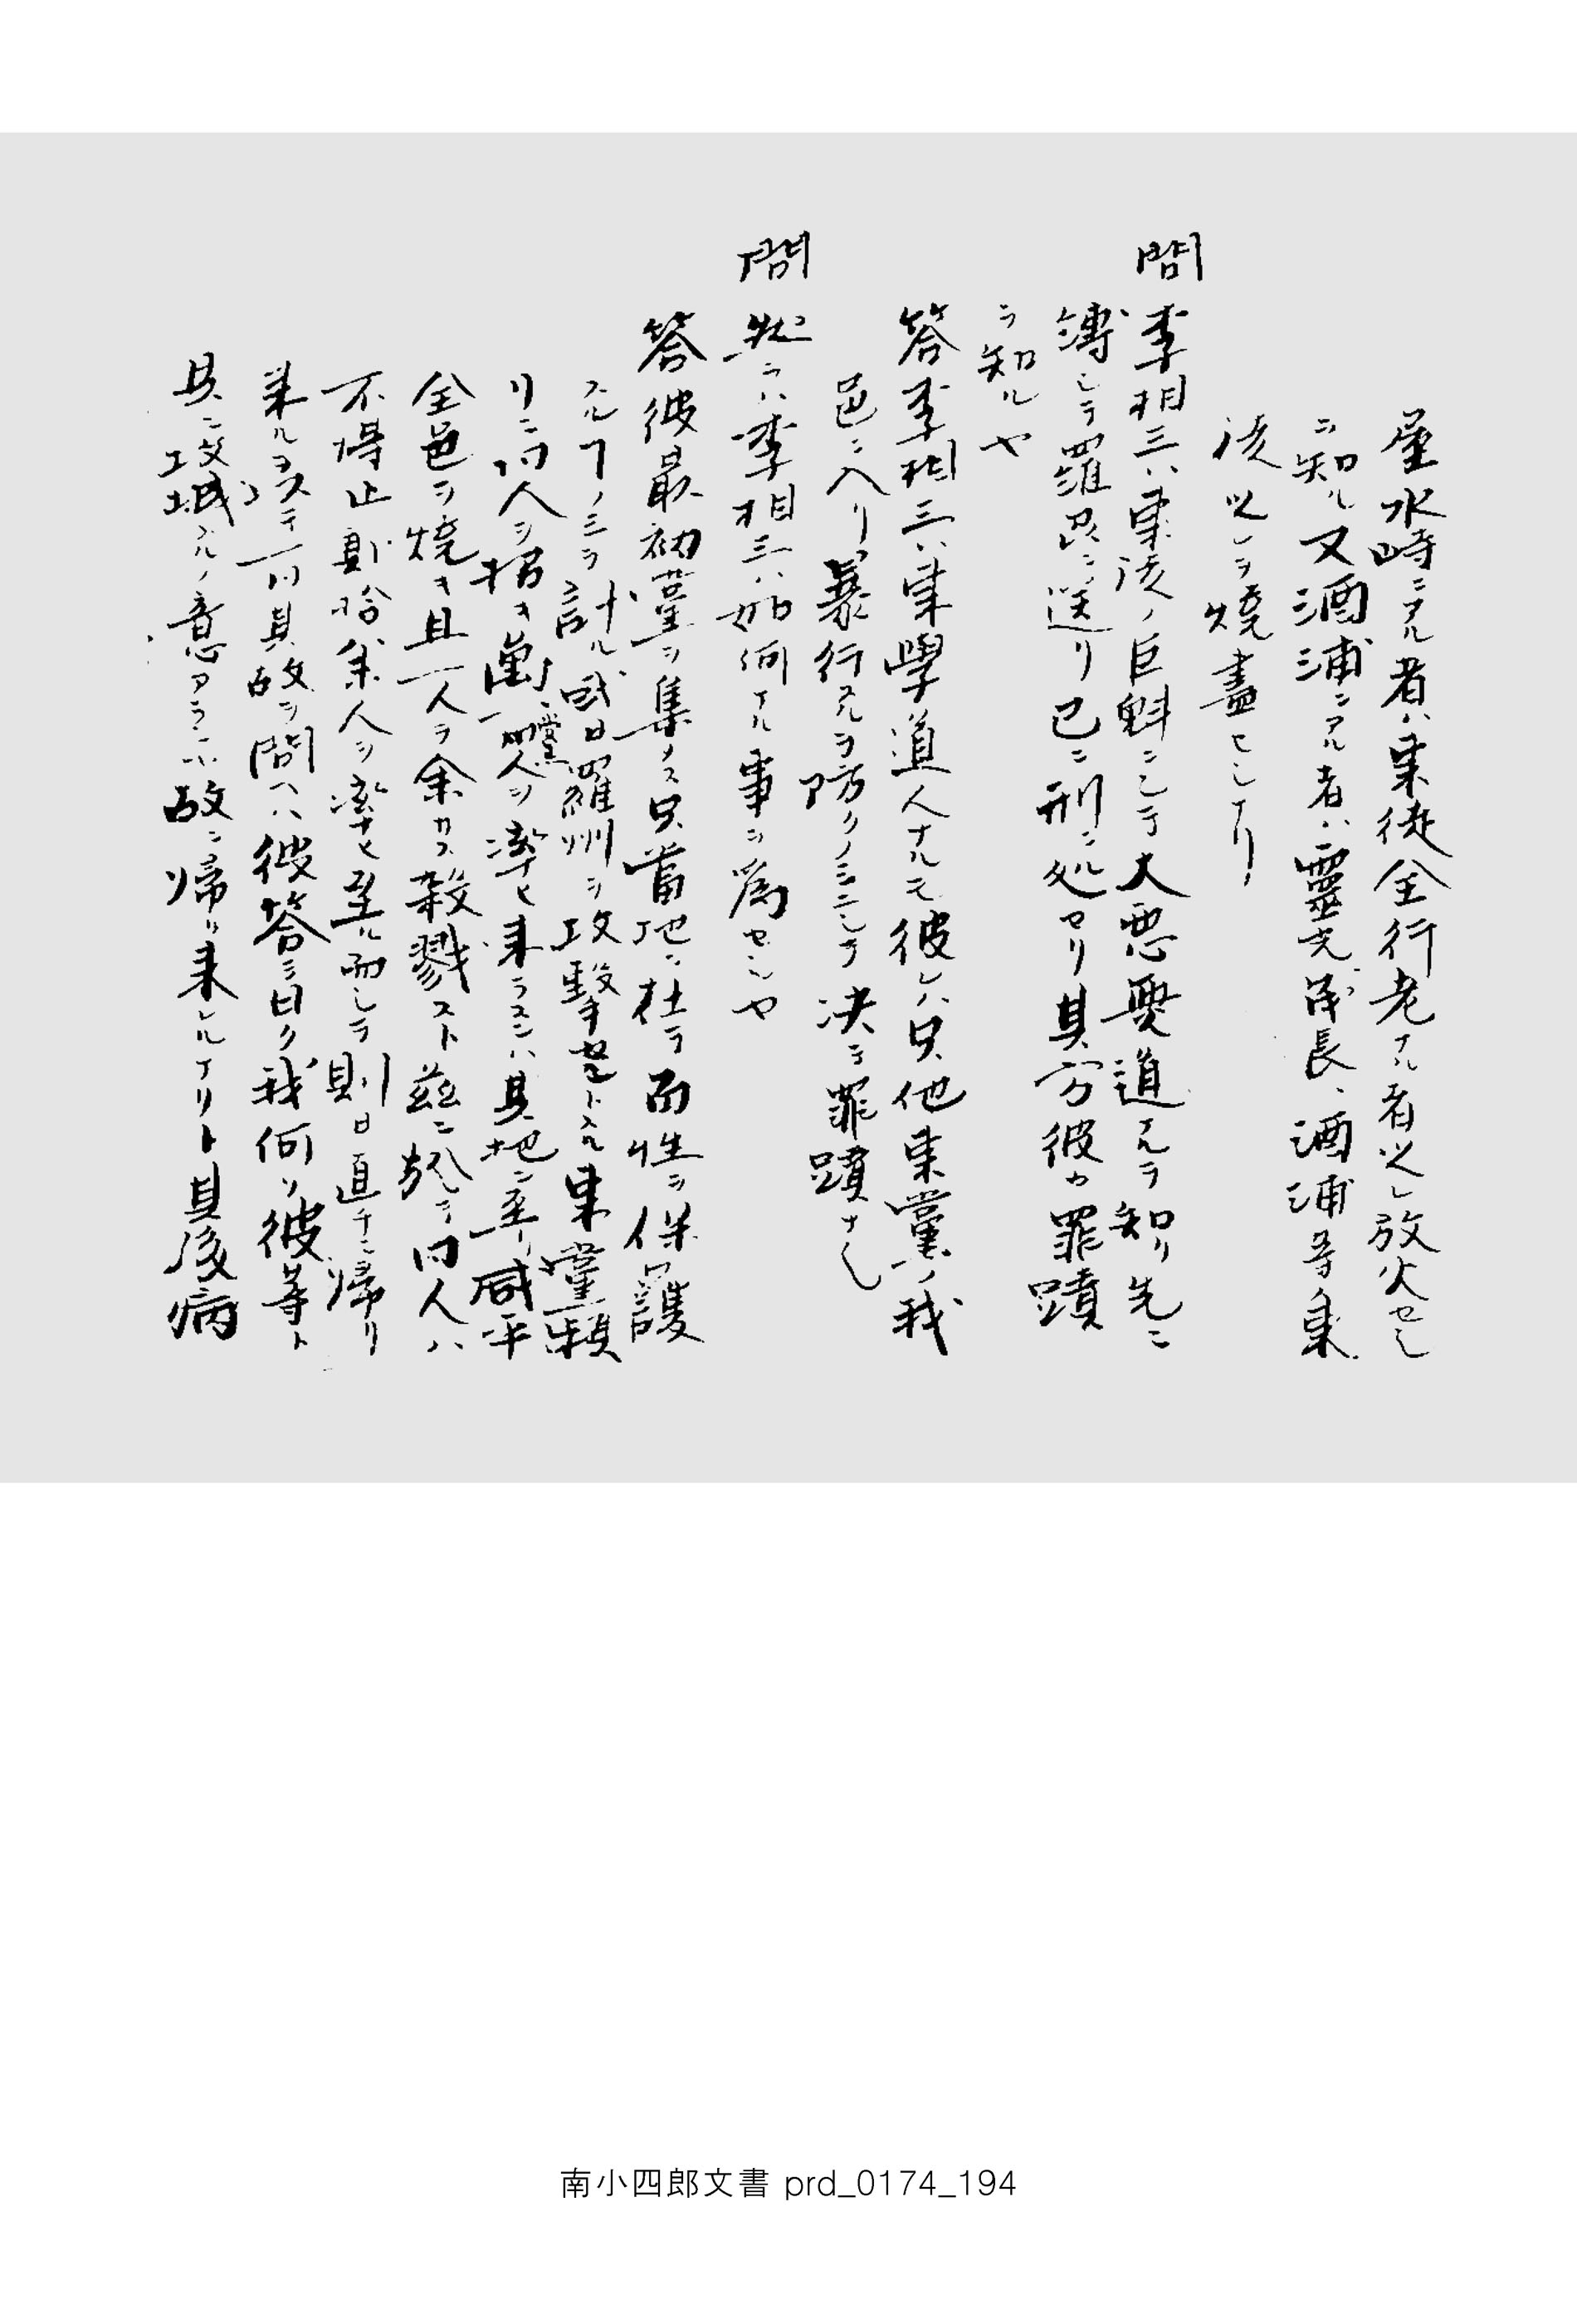 屋水時ニアル者ハ東徒全行老ナル者之レ放火セシ
ヲ知ル又酒浦ニアル者ハ靈光茅長、酒浦等東
徒之レヲ燒盡セシナリ
問 李相三ハ東徒ノ巨魁ニシテ大悪無道ナルヲ知リ先ニ
縛シテ羅州ニ送リ已ニ刑ニ処セリ其方彼カ罪蹟
ヲ知ルヤ
答 李相三ハ東學道人ナルモ彼レハ只他東黨ノ我
邑ニ入リ暴行スルヲ防クノミニシテ決テ罪蹟ナシ
問 然ラハ李相三ハ如何ナル事ヲ為セシヤ
答 彼最初黨ヲ集メス只當地ニ在テ而性ヲ保護
スルヿノミヲ計ル或日羅州ヲ攻撃セントスル東黨頻
リニ同人ヲ招キ萬一黨人ヲ率ヒ来ラスンハ其地ニ至リ咸平
全邑ヲ焼キ且一人ヲ余カス殺戮スト茲ニ於テ同人ハ
不得止貳拾余人ヲ率ヒ至ル而シテ則日直チニ帰リ
来ル 其故ヲ問ヘハ彼答ヘテ曰ク我何ソ彼等ト
共ニ攻城スルノ意アランヤ故ニ帰リ来レルナリト其後病
南小四郎文書 prd_0174_194